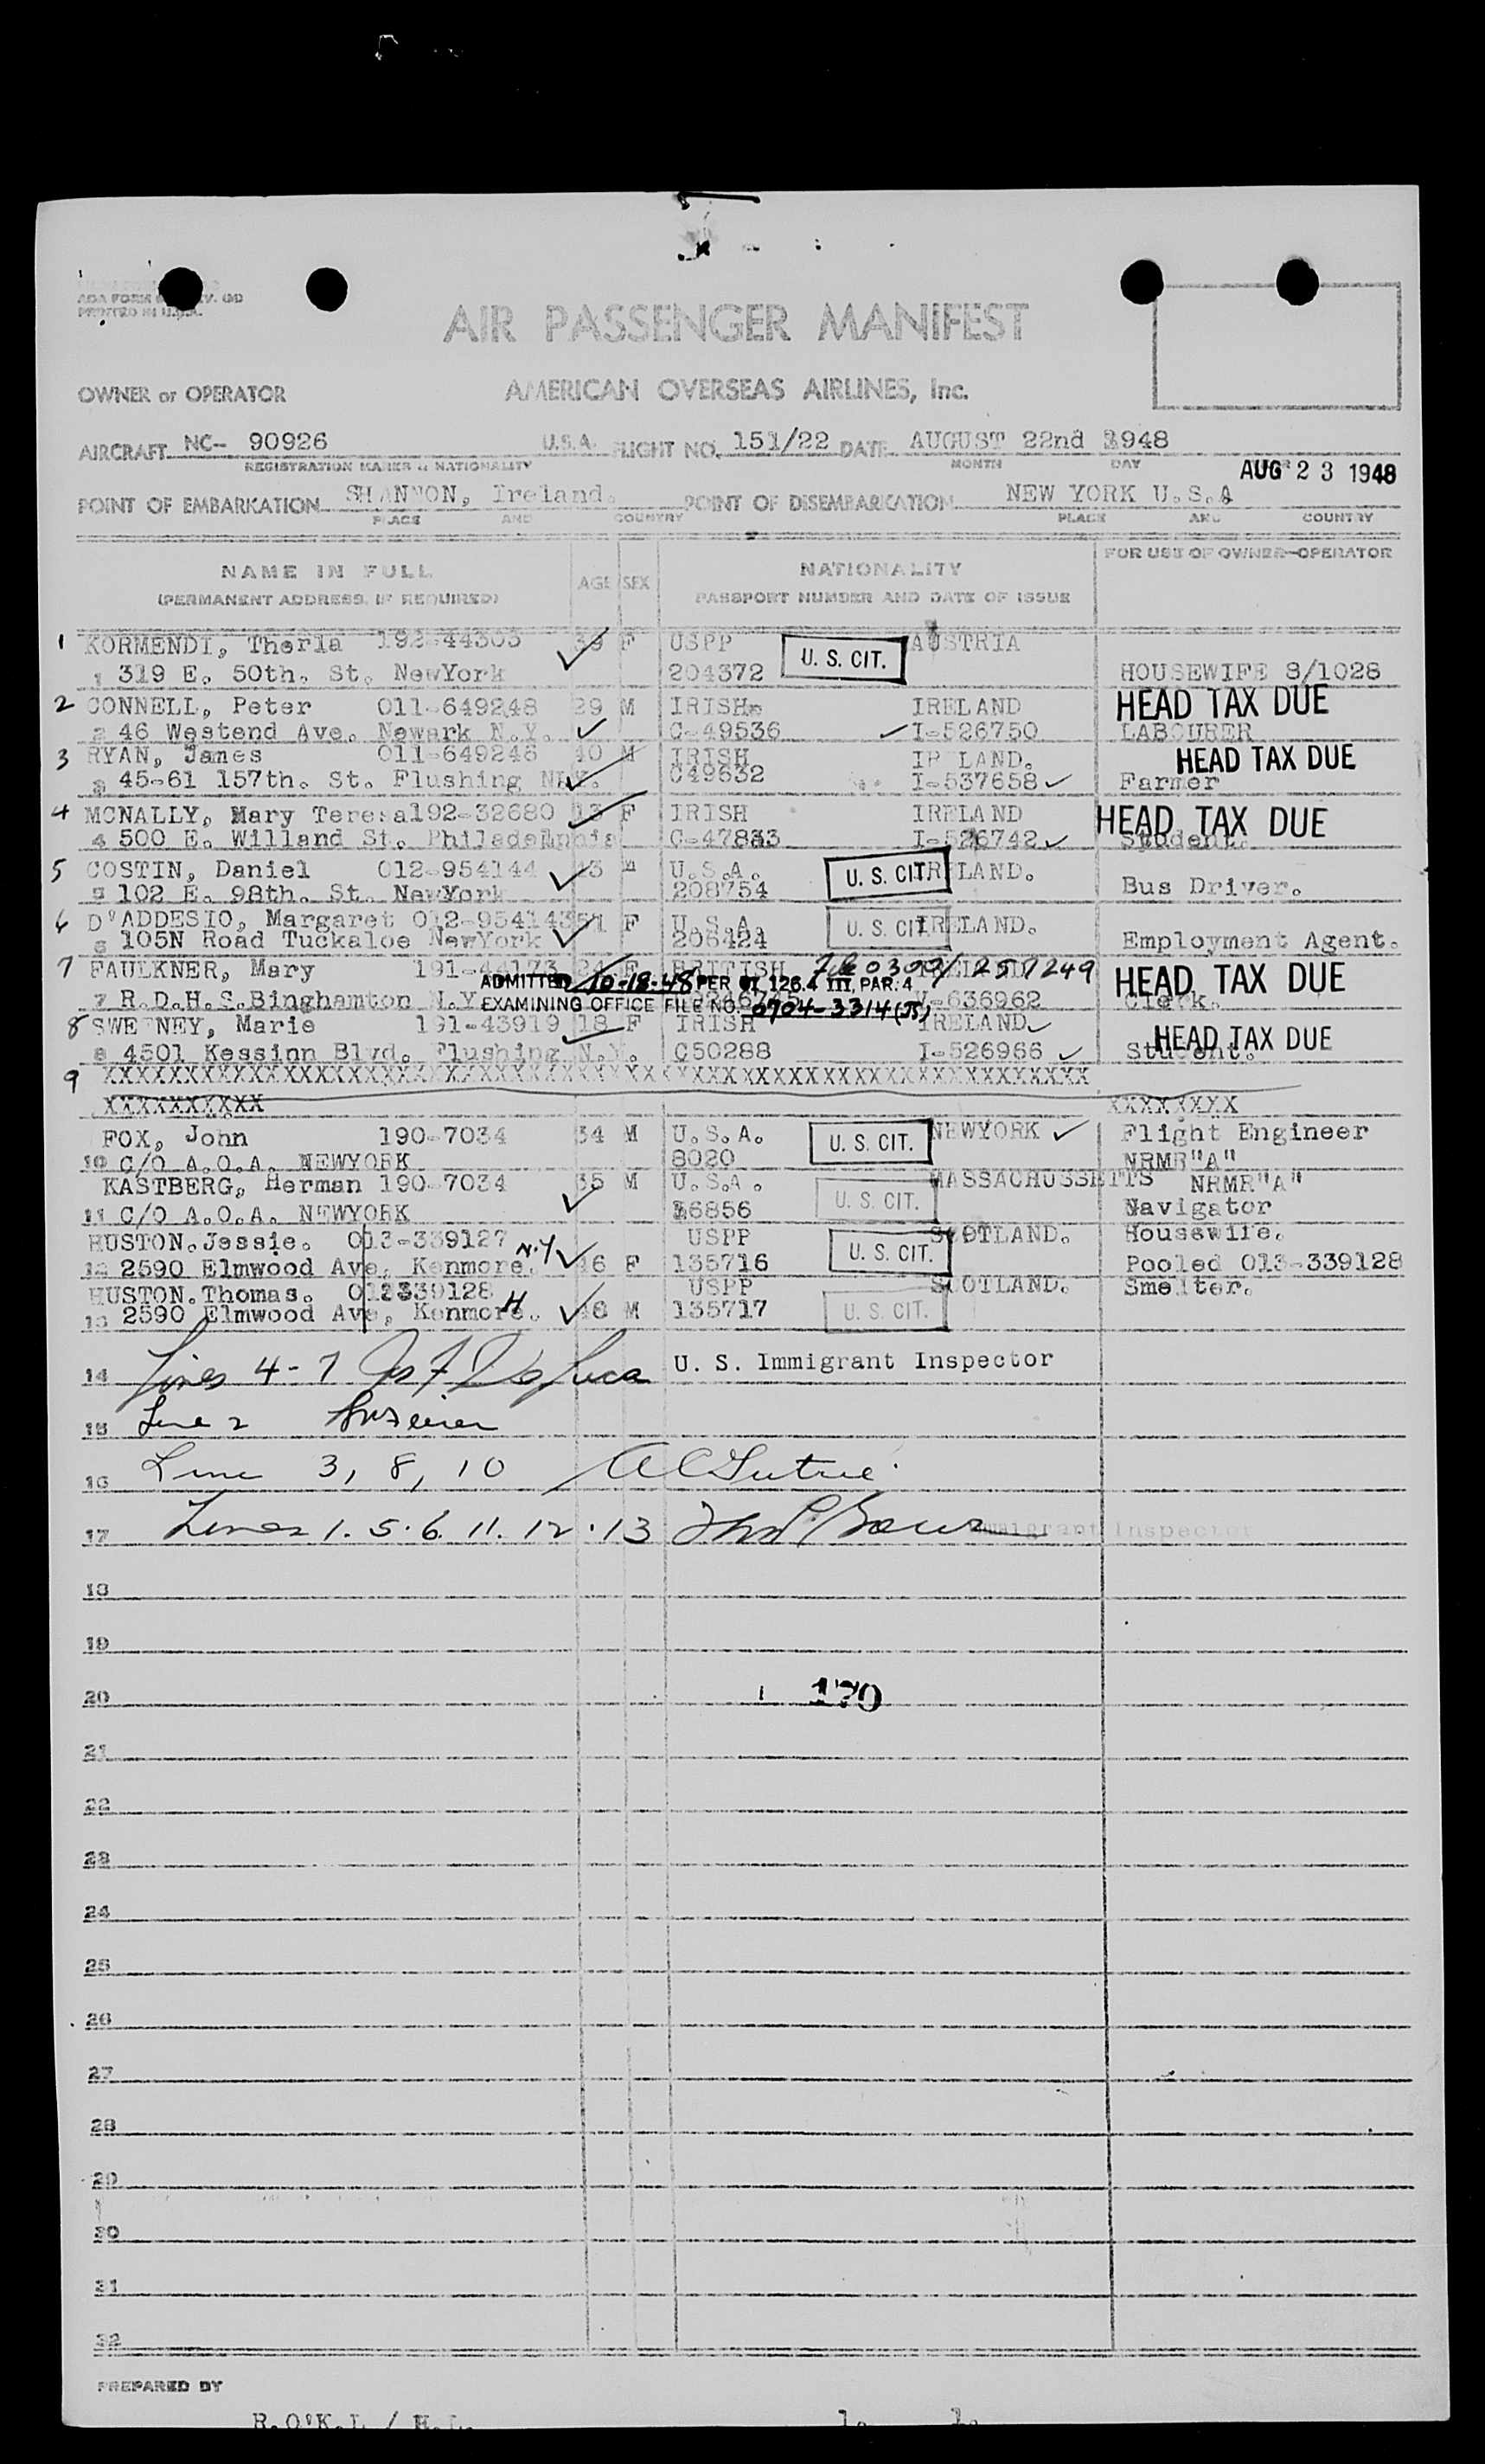 PRINTED IN U.S.A.
AIR PASSENGER MANIFEST
OWNER or OPERATOR AMERICAN OVERSEAS AIRLINES, Inc.
AIRCRAFT NC- 90926 U.S.A. FLIGHT NO. 151/22 DATE AUGUST 22nd 1948
REGISTRATION MARKS & NATIONALITY MONTH DAY
AUG 23 1948
POINT OF EMBARKATION SHANNON, Ireland. POINT OF DISEMBARKATION NEW YORK U.S.A
PLACE AND COUNTRY PLACE AND COUNTRY
FOR USE OF OWNER-OPERATOR
NAME IN FULL AGE SEX NATIONALITY
(PERMANENT ADDRESS, IF REQUIRED) PASSPORT NUMBER AND DATE OF ISSUE
1 KORMENDI, Theria 192-44303 39 F USPP U. S. CIT. AUSTRIA
1 319 E. 50th. St. NewYork 204372 HOUSEWIFE 8/1028
2 CONNELL, Peter 011-649248 29 M IRISH IRELAND HEAD TAX DUE
2 46 Westend Ave. Newark N.Y. C-49536 I-526750 LABOURER
3 RYAN, James 011-649246 40 M IRISH IRELAND. HEAD TAX DUE
3 45-61 157th. St. Flushing N.Y. C49632 I-537658 Farmer
4 MCNALLY, Mary Teresa 192-32680 13 F IRISH IRELAND HEAD TAX DUE
4 500 E. Willand St. Philadelphia C-47833 I-526742 Student.
5 COSTIN, Daniel 012-954144 43 M U.S.A. U. S. CIT. IRELAND.
5 102 E. 98th. St. NewYork 208754 Bus Driver.
6 D'ADDESIO, Margaret 012-954143 51 F U.S.A. U. S. CIT. IRELAND.
6 105N Road Tuckaloe NewYork 206424 Employment Agent.
7 FAULKNER, Mary 191-44173 24 F BRITISH IRELAND 0300/257249 HEAD TAX DUE
ADMITTED 10-18-48 PER OI 126.4 III, PAR. 4
7 R.D.H.S.Binghamton N.Y. I-636962 Clerk.
EXAMINING OFFICE FILE NO. 0704-3314(B)
8 SWEENEY, Marie 191-43919 18 F IRISH IRELAND HEAD TAX DUE
8 4501 Kessinn Blvd. Flushing N.Y. C50288 I-526966 Student.
9 XXXXXXXXXXXXXXXXXXXXXXXXXXXXXXXXXXXXXXXXXXXXXXXXXXXXXXXXXXXXX
XXXXXXXXXX XXXXXXXX
FOX, John 190-7034 34 M U.S.A. U. S. CIT. NEWYORK Flight Engineer
10 C/O A.O.A. NEWYORK 8020 NRMR"A"
KASTBERG, Herman 190-7034 35 M U.S.A. MASSACHUSSETTS NRMR"A"
11 C/O A.O.A. NEWYORK 16856 U. S. CIT. Navigator
HUSTON.Jessie. 013-339127 N.Y USPP U. S. CIT. SCOTLAND. Housewife.
12 2590 Elmwood Ave, Kenmore. 46 F 135716 Pooled 013-339128
HUSTON.Thomas. 013339128 USPP SCOTLAND. Smelter.
13 2590 Elmwood Ave, Kenmore. 48 M 135717 U. S. CIT.
14 Lines 4-7 U. S. Immigrant Inspector
15 Line 2
16 Line 3, 8, 10
17 Lines 1. 5. 6. 11. 12. 13 Immigrant Inspector
18
19
20 170
21
22
23
24
25
26
27
28
29
30
31
32
PREPARED BY
R.O'K.L / H.L.